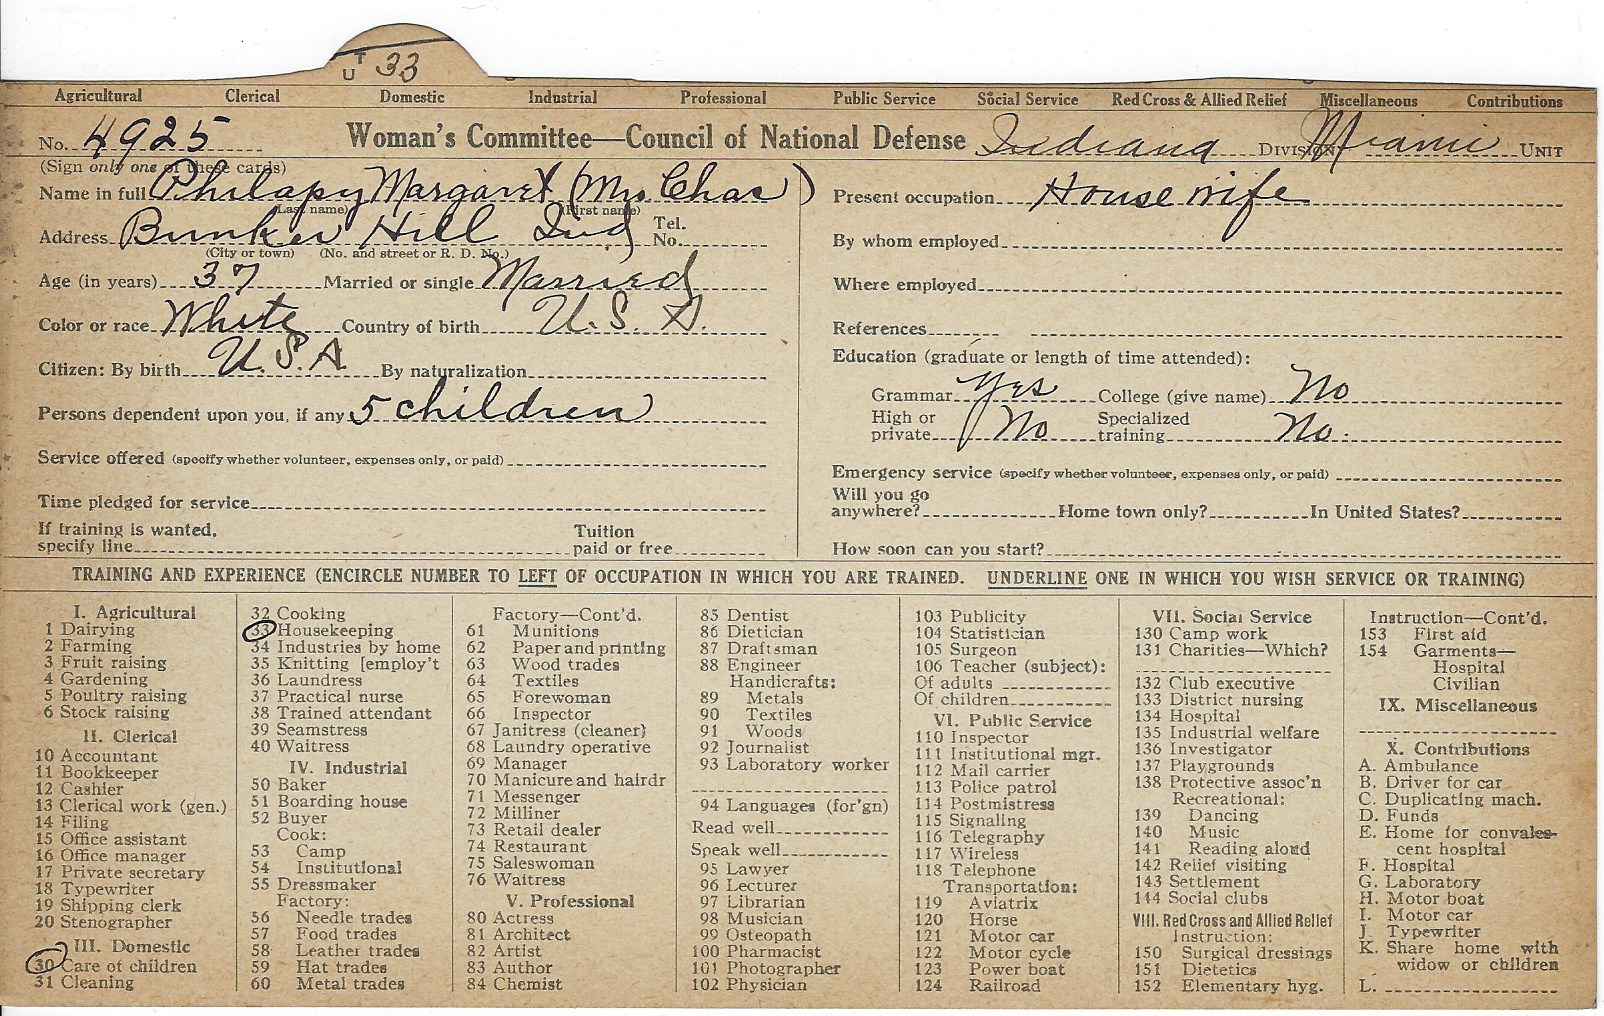 T
U 33
Agricultural Clerical Domestic Industrial Professional Public Service Social Service Red Cross & Allied Relief Miscellaneous Contributions
No. 4925 Woman's Committee—Council of National Defense Indiana DIVISION Miami UNIT
(Sign only one of these cards)
Name in full Philapy Margaret (Mrs. Chas)
(Last name) (First name)
Address Bunker Hill Ind Tel. No.
(City or town) (No. and street or R. D. No.)
Age (in years) 37 Married or single Married
Color or race White Country of birth U. S. A.
Citizen: By birth U.S.A. By naturalization
Persons dependent upon you, if any 5 children
Service offered (specify whether volunteer, expenses only, or paid)
Time pledged for service
If training is wanted, specify line Tuition paid or free
Present occupation House wife
By whom employed
Where employed
References
Education (graduate or length of time attended):
Grammar Yes College (give name) No
High or private No Specialized training No.
Emergency service (specify whether volunteer, expenses only, or paid)
Will you go anywhere? Home town only? In United States?
How soon can you start?
TRAINING AND EXPERIENCE (ENCIRCLE NUMBER TO LEFT OF OCCUPATION IN WHICH YOU ARE TRAINED. UNDERLINE ONE IN WHICH YOU WISH SERVICE OR TRAINING)
I. Agricultural
1 Dairying
2 Farming
3 Fruit raising
4 Gardening
5 Poultry raising
6 Stock raising
II. Clerical
10 Accountant
11 Bookkeeper
12 Cashier
13 Clerical work (gen.)
14 Filing
15 Office assistant
16 Office manager
17 Private secretary
18 Typewriter
19 Shipping clerk
20 Stenographer
III. Domestic
30 Care of children
31 Cleaning
32 Cooking
33 Housekeeping
34 Industries by home
35 Knitting [employ't
36 Laundress
37 Practical nurse
38 Trained attendant
39 Seamstress
40 Waitress
IV. Industrial
50 Baker
51 Boarding house
52 Buyer
Cook:
53 Camp
54 Institutional
55 Dressmaker
Factory:
56 Needle trades
57 Food trades
58 Leather trades
59 Hat trades
60 Metal trades
Factory—Cont'd.
61 Munitions
62 Paper and printing
63 Wood trades
64 Textiles
65 Forewoman
66 Inspector
67 Janitress (cleaner)
68 Laundry operative
69 Manager
70 Manicure and hairdr
71 Messenger
72 Milliner
73 Retail dealer
74 Restaurant
75 Saleswoman
76 Waitress
V. Professional
80 Actress
81 Architect
82 Artist
83 Author
84 Chemist
85 Dentist
86 Dietician
87 Draftsman
88 Engineer
Handicrafts:
89 Metals
90 Textiles
91 Woods
92 Journalist
93 Laboratory worker
94 Languages (for'gn)
Read well
Speak well
95 Lawyer
96 Lecturer
97 Librarian
98 Musician
99 Osteopath
100 Pharmacist
101 Photographer
102 Physician
103 Publicity
104 Statistician
105 Surgeon
106 Teacher (subject):
Of adults
Of children
VI. Public Service
110 Inspector
111 Institutional mgr.
112 Mail carrier
113 Police patrol
114 Postmistress
115 Signaling
116 Telegraphy
117 Wireless
118 Telephone
Transportation:
119 Aviatrix
120 Horse
121 Motor car
122 Motor cycle
123 Power boat
124 Railroad
VII. Social Service
130 Camp work
131 Charities—Which?
132 Club executive
133 District nursing
134 Hospital
135 Industrial welfare
136 Investigator
137 Playgrounds
138 Protective assoc'n
Recreational:
139 Dancing
140 Music
141 Reading aloud
142 Relief visiting
143 Settlement
144 Social clubs
VIII. Red Cross and Allied Relief
Instruction:
150 Surgical dressings
151 Dietetics
152 Elementary hyg.
Instruction—Cont'd.
153 First aid
154 Garments—
Hospital
Civilian
IX. Miscellaneous
X. Contributions
A. Ambulance
B. Driver for car
C. Duplicating mach.
D. Funds
E. Home for convales-
cent hospital
F. Hospital
G. Laboratory
H. Motor boat
I. Motor car
J. Typewriter
K. Share home with
widow or children
L.